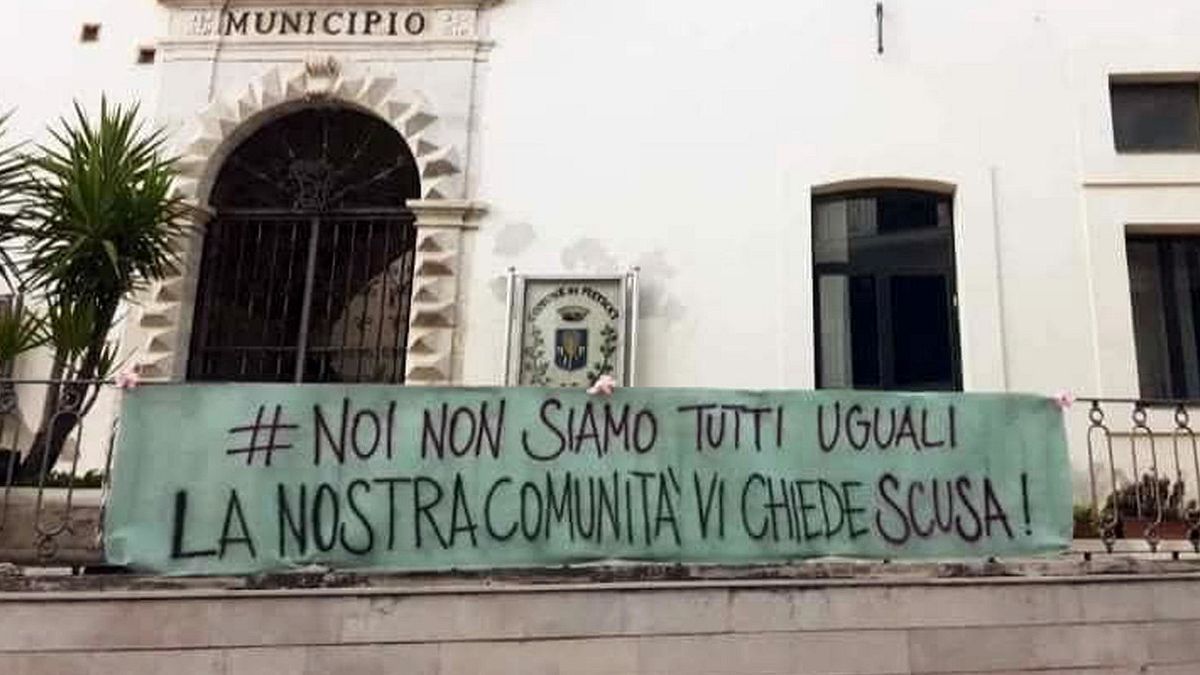 MUNICIPIO
COMUNE DI
# NOI NON SIAMO TUTTI UGUALI
LA NOSTRA COMUNITÀ VI CHIEDE SCUSA!